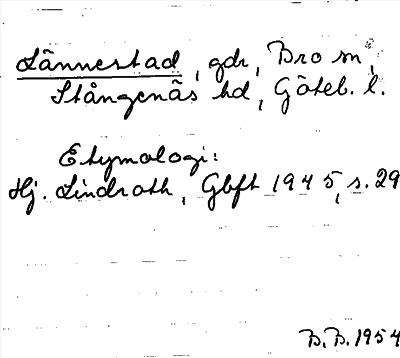 Lännestad, gdr, Bro sn,
Stångenäs hd, Göteb. l.
Etymologi:
Hj. Lindroth, Gbft 1945, s. 29
B.B. 1954